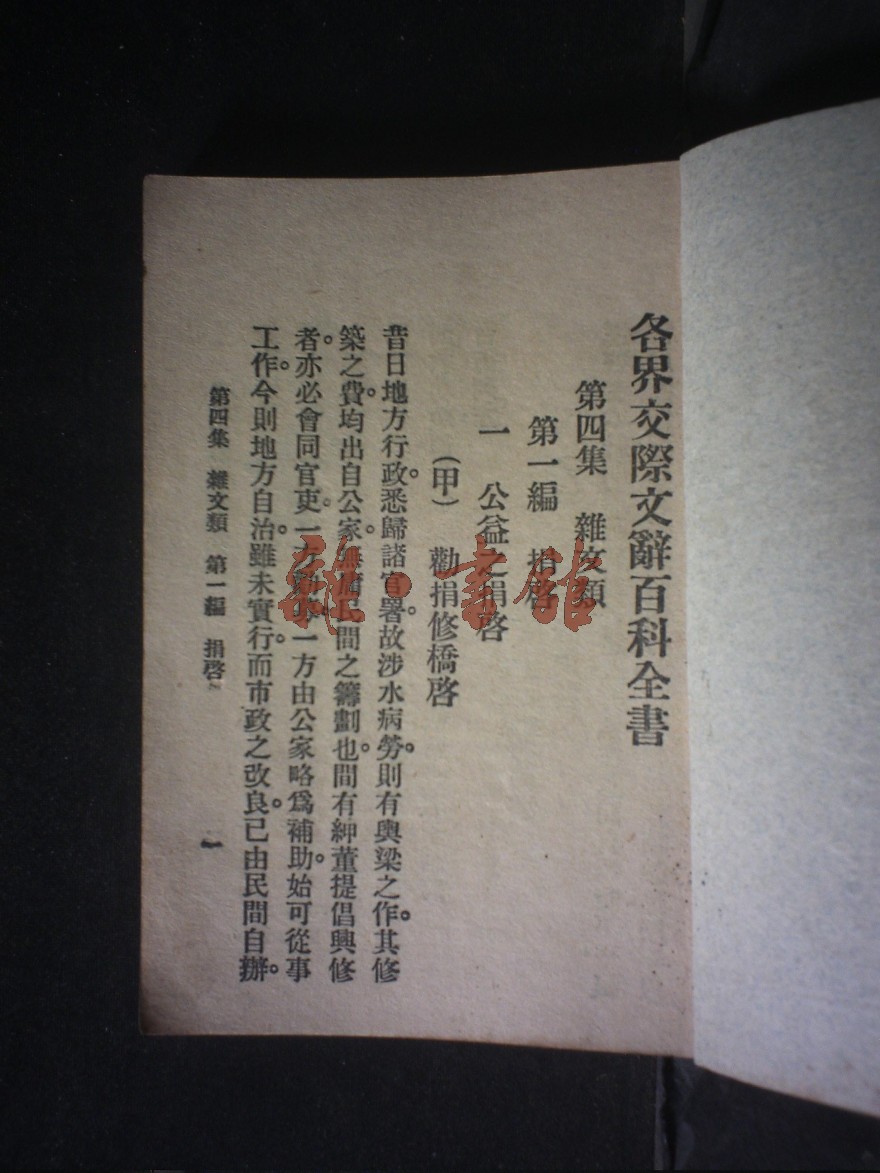 各界交際文辭百科全書
第四集　雜文類
第一編　捐啓
一　公益之捐啓
（甲）　勸捐修橋啓
昔日地方行政。悉歸諸官署。故涉水病勞。則有輿梁之作。其修
築之費。均出自公家。無庸民間之籌劃也。間有紳董提倡興修
者。亦必會同官吏。一方勸募。一方由公家略爲補助。始可從事
工作。今則地方自治。雖未實行。而市政之改良。已由民間自辦。
第四集　雜文類　第一編　捐啓
一
雜·書館